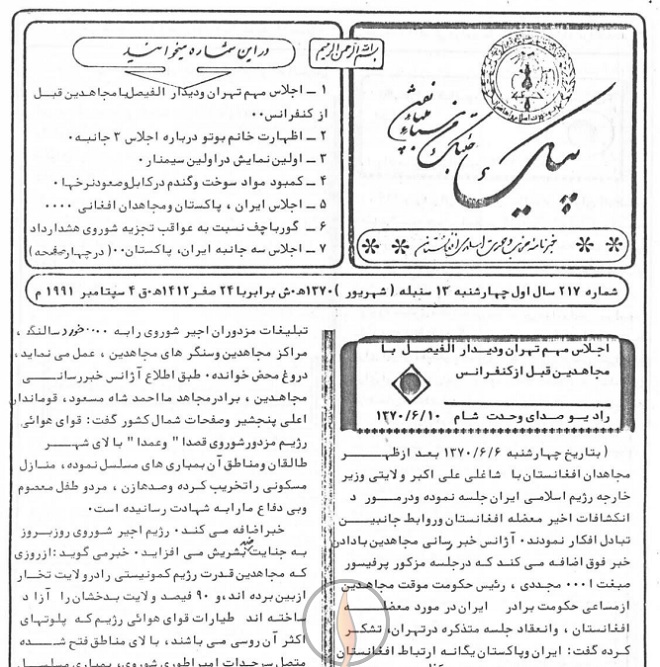 بسم الله الرحمن الرحیم
پیک
خبرنامه حزب وحدت اسلامی افغانستان
در این شماره میخوانید
۱ ــ اجلاس مهم تهران ودیدار الفیصل با مجاهدین قبل
از کنفرانس۰۰
۲ ــ اظهارت خانم بوتو درباره اجلاس ۳ جانبه۰
۳ ــ اولین نمایش در اولین سیمنار۰
۴ ــ کمبود مواد سوخت وگندم درکابل وصعود نرخها۰
۵ ــ اجلاس ایران ، پاکستان ومجاهدان افغانی ۰۰۰۰
۶ ــ گورباچف نسبت به عواقب تجزیه شوروی هشدارداد
۷ ــ اجلاس سه جانبه ایران، پاکستان۰۰(درچهارصفحه)
شماره ۲۱۷ سال اول چهارشنبه ۱۳ سنبله ( شهریور )۱۳۷۰ه‍۰ش برابربا ۲۴ صفر۱۴۱۲ه‍۰ق ۴ سپتامبر ۱۹۹۱ م
اجلاس مهم تهران ودیدار الفیصل با
مجاهدین قبل ازکنفرانس
رادیو صدای وحدت شام ۱۳۷۰/۶/۱۰
( بتاریخ چهارشنبه ۱۳۷۰/۶/۶ بعد ازظهر
مجاهدان افغانستان با شاغلی علی اکبر ولایتی وزیر
خارجه رژیم اسلامی ایران جلسه نموده ودرمورد د
انکشافات اخیر معضله افغانستان وروابط جانبین
تبادل افکار نمودند۰ آژانس خبر رسانی مجاهدین بادادن
خبر فوق اضافه می کند که درجلسه مزکور پرفیسور
صبغت ا۰۰۰ مجددی ، رئیس حکومت موقت مجاهدین
ازمساعی حکومت برادر ایران در مورد معضله
افغانستان ، وانعقاد جلسه متذکره درتهران، تشکر
کرده گفت: ایران وپاکستان یگانه ارتباط افغانستان
تبلیغات مزدوران اجیر شوروی رابه ۰۰۰۰ خورد سالنگ ،
مراکز مجاهدین وسنگر های مجاهدین ، عمل می نماید،
دروغ محض خوانده۰ طبق اطلاع آژانس خبررسانی
مجاهدین ، برادرمجاهد ما احمد شاه مسعود، قوماندان
اعلی پنجشیر وصفحات شمال کشور گفت: قوای هوائی
رژیم مزدورشوروی قصدا" وعمدا" با لای شهر
طالقان ومناطق آن بمباری های مسلسل نموده، منازل
مسکونی راتخریب کرده وصدهازن ، مردو طفل معصوم
وبی دفاع مارابه شهادت رسانیده است۰
خبراضافه می کند۰ رژیم اجیر شوروی روزبروز
به جنایت ضد بشریش می افزاید۰ خبرمی گوید:ازروزی
که مجاهدین قدرت رژیم کمونیستی رادرولایت تخار
ازبین برده اند،و ۹۰ فیصد ولایت بدخشان را آزاد
ساخته اند طیارات قوای هوائی رژیم که پلوتهای
اکثر آن روسی می باشند، با لای مناطق فتح شده
متصل سرحدات امپراطوری شوروی، بمباری مسلسل